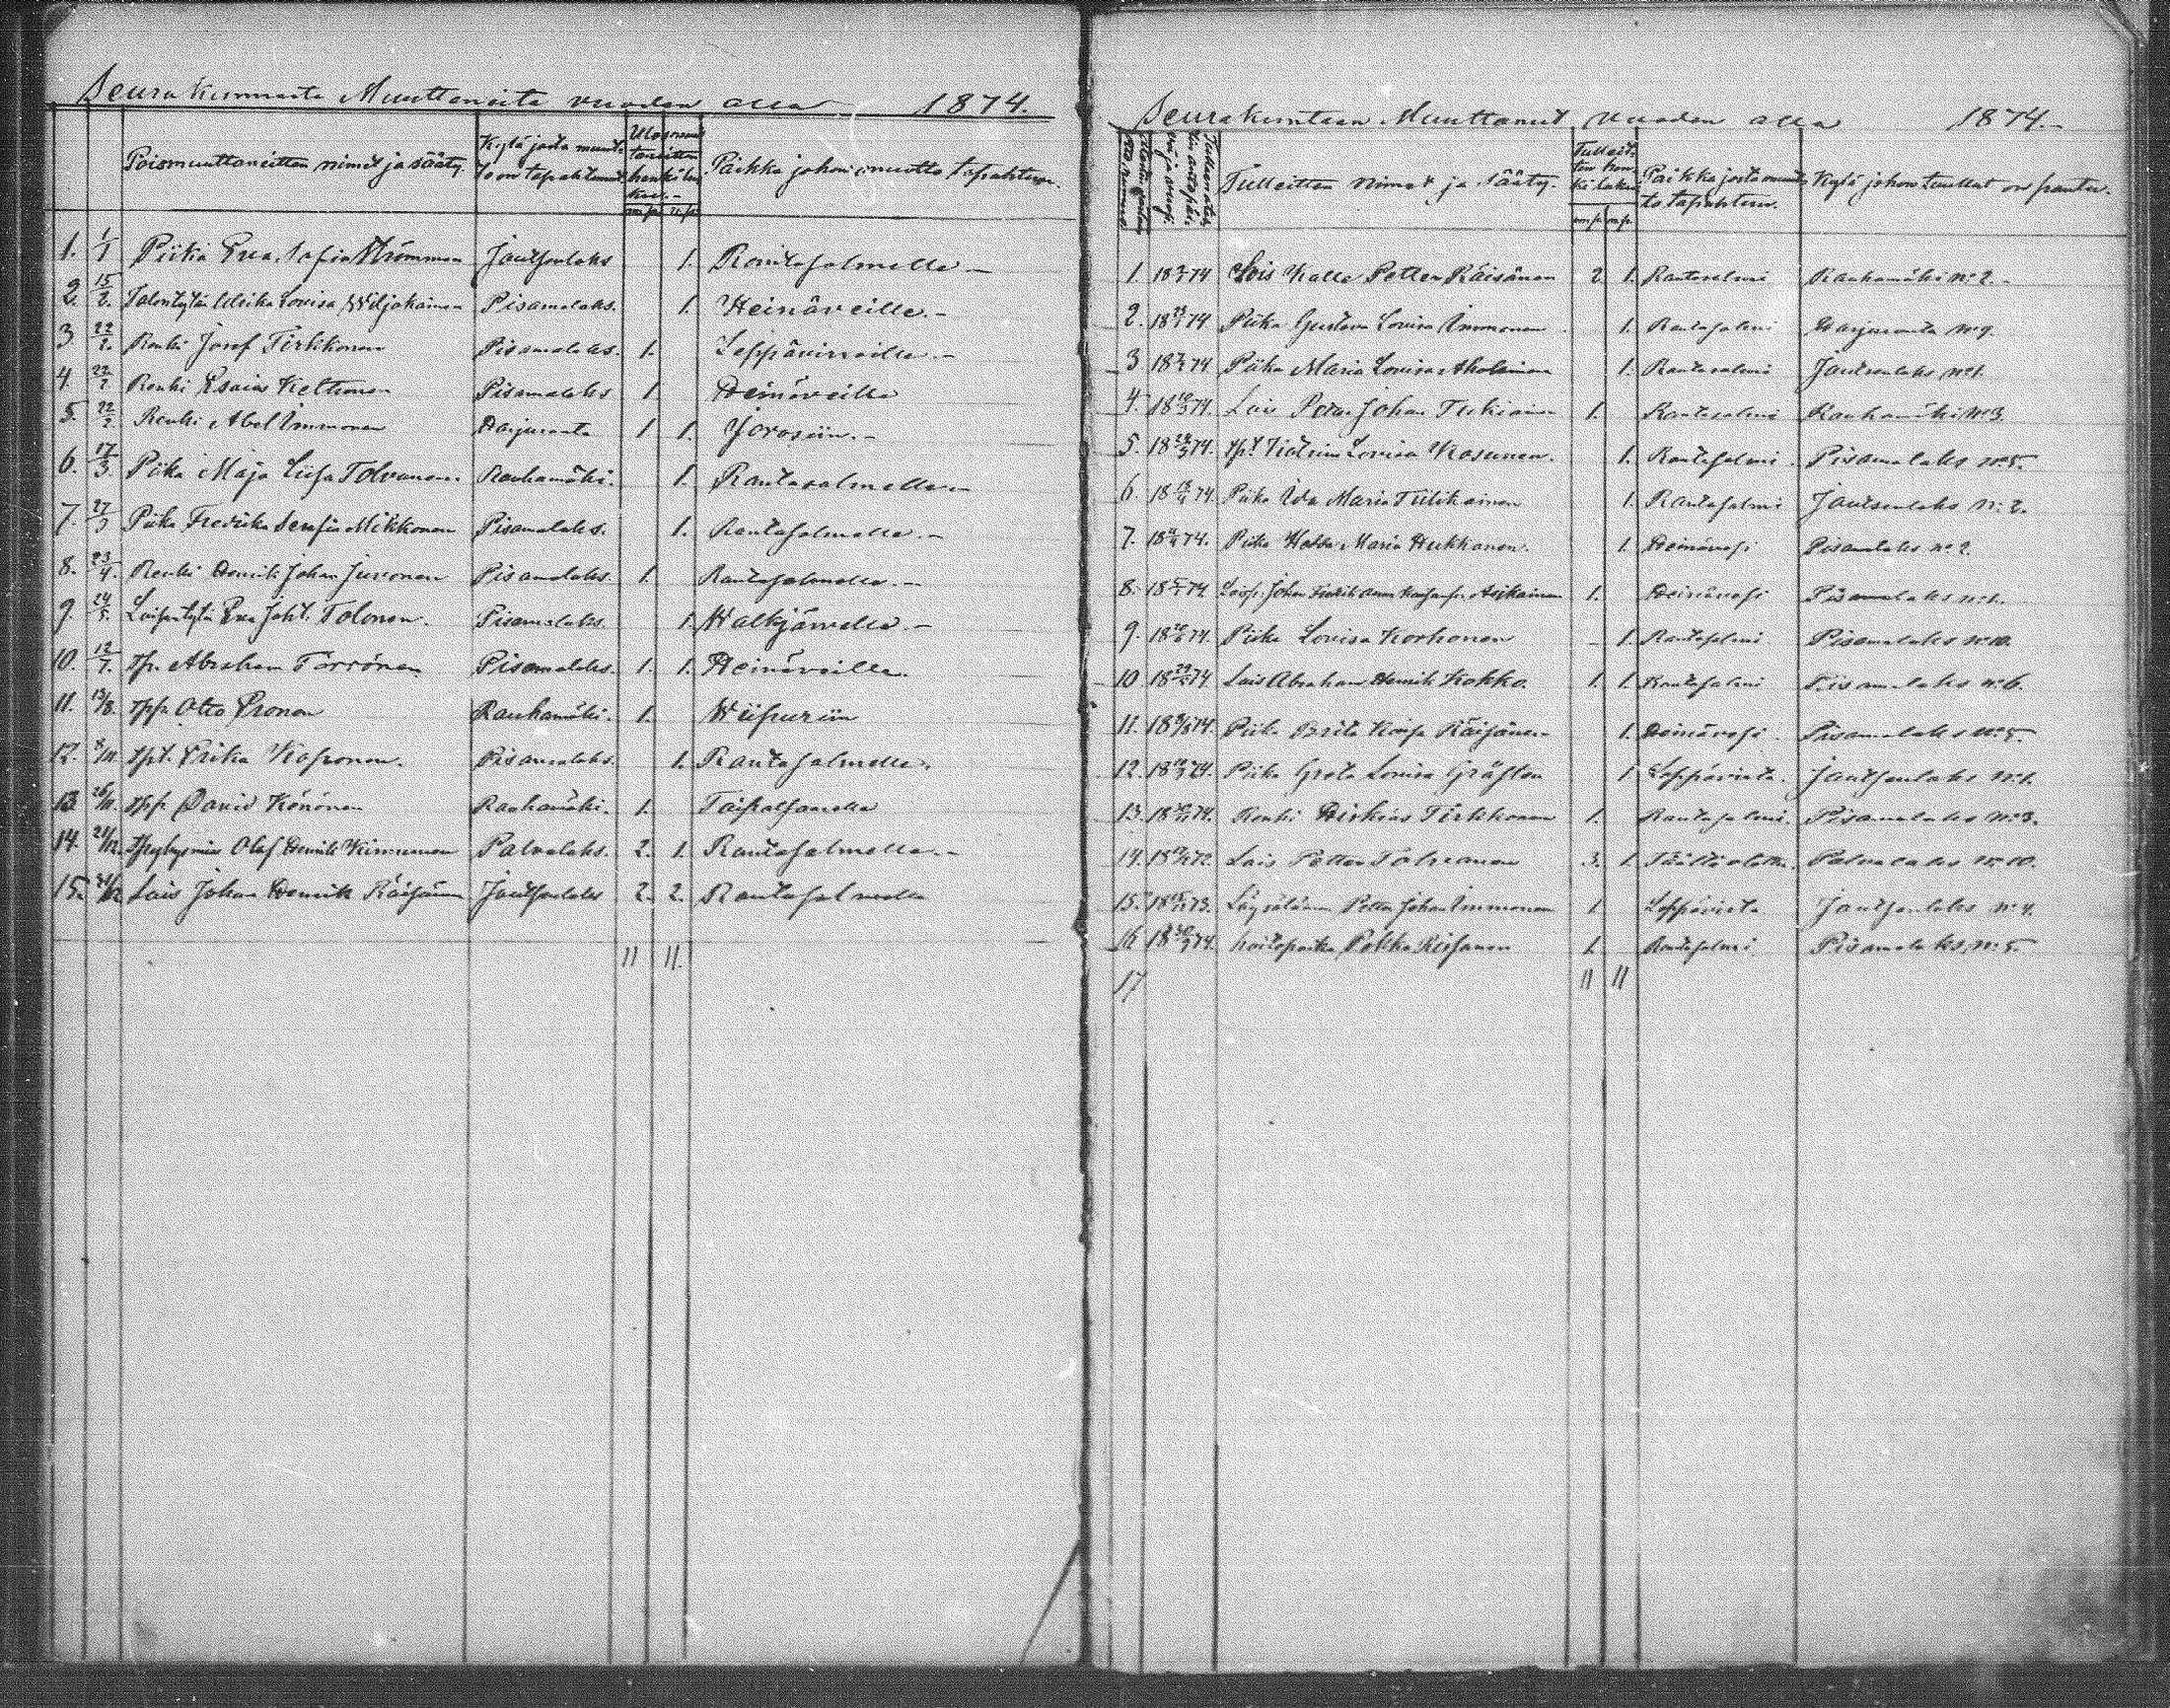 Seurakunnasta Muuttaneita vuoden alla 1874.
Poismuuttaneitten nimet ja sääty. Kylä josta muutto on tapahtunut Paikka johon muutto tapahtuu.
mp. np.
1. 1/1 Piika Eva Sofia Jautsenlaks 1. Rantasalmelle
2. 15/2. Talontytär Ulrika Lovisa Wiljakainen Pisamalaks. 1. Heinäveille.
3 22/2. Renki Josef Tirkkonen Pisamalaks. 1. Leppävirroille.
4. 22/2. Renki Esaias Kettunen Pisamalaks 1. Heinäveille
5. 22/2. Renki Abel Immonen Harjuranta 1 1. Joroisiin.
6. 17/3. Piika Maja Liisa Tolvanen. Rauhamäki. 1. Rantasalmelle
7. 27/3 Piika Fredrika Serafia Mikkonen Pisamalaks. 1. Rantasalmelle.
8. 23/4. Renki Henrik Johan Juvonen Pisamalaks. 1. Rantasalmelle.
9. 24/5. Eva Tolonen. Pisamalaks. 1. Walkjärvelle.
10. 12/7. Abraham Törrönen Pisamalaks. 1. 1. Heinäveille.
11. 13/8. Otto Eronen Rauhamäki. 1. Wiipuriin
12. 8/11. Erika Kosonen. Pisamalaks. 1. Rantasalmelle.
13 26/11. David Könönen Rauhamäki. 1. Taipalsaarelle
14. 21/12. Olof Henrik Kinnunen Palvalaks. 2. 1. Rantasalmelle.
15. Lois Johan Henrik Räisänen Jautsenlaks 2. 2. Rantasalmelle
11 11.
Seurakuntaan Muuttanut vuoden alla 1874.
Tulleitten nimet ja sääty. Paikka josta muutto tapahtuu. Kylä johon tullut on pantu.
mp. np.
1. 74 Lois Kalle Petter Räisänen 2 1. Rantasalmi Rauhamäki No 2.
2. 74 Piika Gustava Lovisa Immonen 1. Rantasalmi Harjuranta No 9.
3 74 Piika Maria Lovisa Aholainen 1. Rantasalmi Jautsenlaks No 1.
4. 74. Lois Petter Johan Tukiainen 1. Rantasalmi Rauhamäki No 3.
5. 74. Lovisa Kosunen. 1. Rantasalmi Pisamalaks No 5.
6. 74. Piika Ida Maria Tulikainen 1. Rantasalmi Jautsenlaks No 2.
7. 74. Piika Maria Hukkanen. 1. Heinävesi Pisamalaks No 2.
8. 74 Johan Fredrik Asikainen 1. Heinävesi Pisamalaks No 1.
9. 74. Piika Lovisa Korhonen 1. Rantasalmi Pisamalaks No 10.
10 74 Lois Abraham Henrik Kokko. 1. 1. Rantasalmi Pisamalaks No 6.
11. 74. Piika Brita Räisänen 1. Heinävesi Pisamalaks No 5.
12. 74. Piika Greta Lovisa Grästen 1. Leppävirta. Jautsenlaks No 1.
13. 74. Renki Tirkkonen 1. Rantasalmi. Pisamalaks No 3.
14. 72. Lois Petter Tolvanen 3. 1. Palvalaks No 10.
15. 73. Petter Johan Immonen 1. Leppävirta Jautsenlaks No 4.
16 74. Hoitopoika Pekka Räisänen 1. Rantasalmi. Pisamalaks No 5
17 11 11